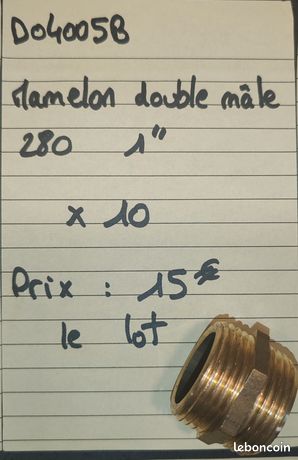 D04005B
Mamelon double mâle
280 1"
x 10
Prix : 15€
le lot
leboncoin